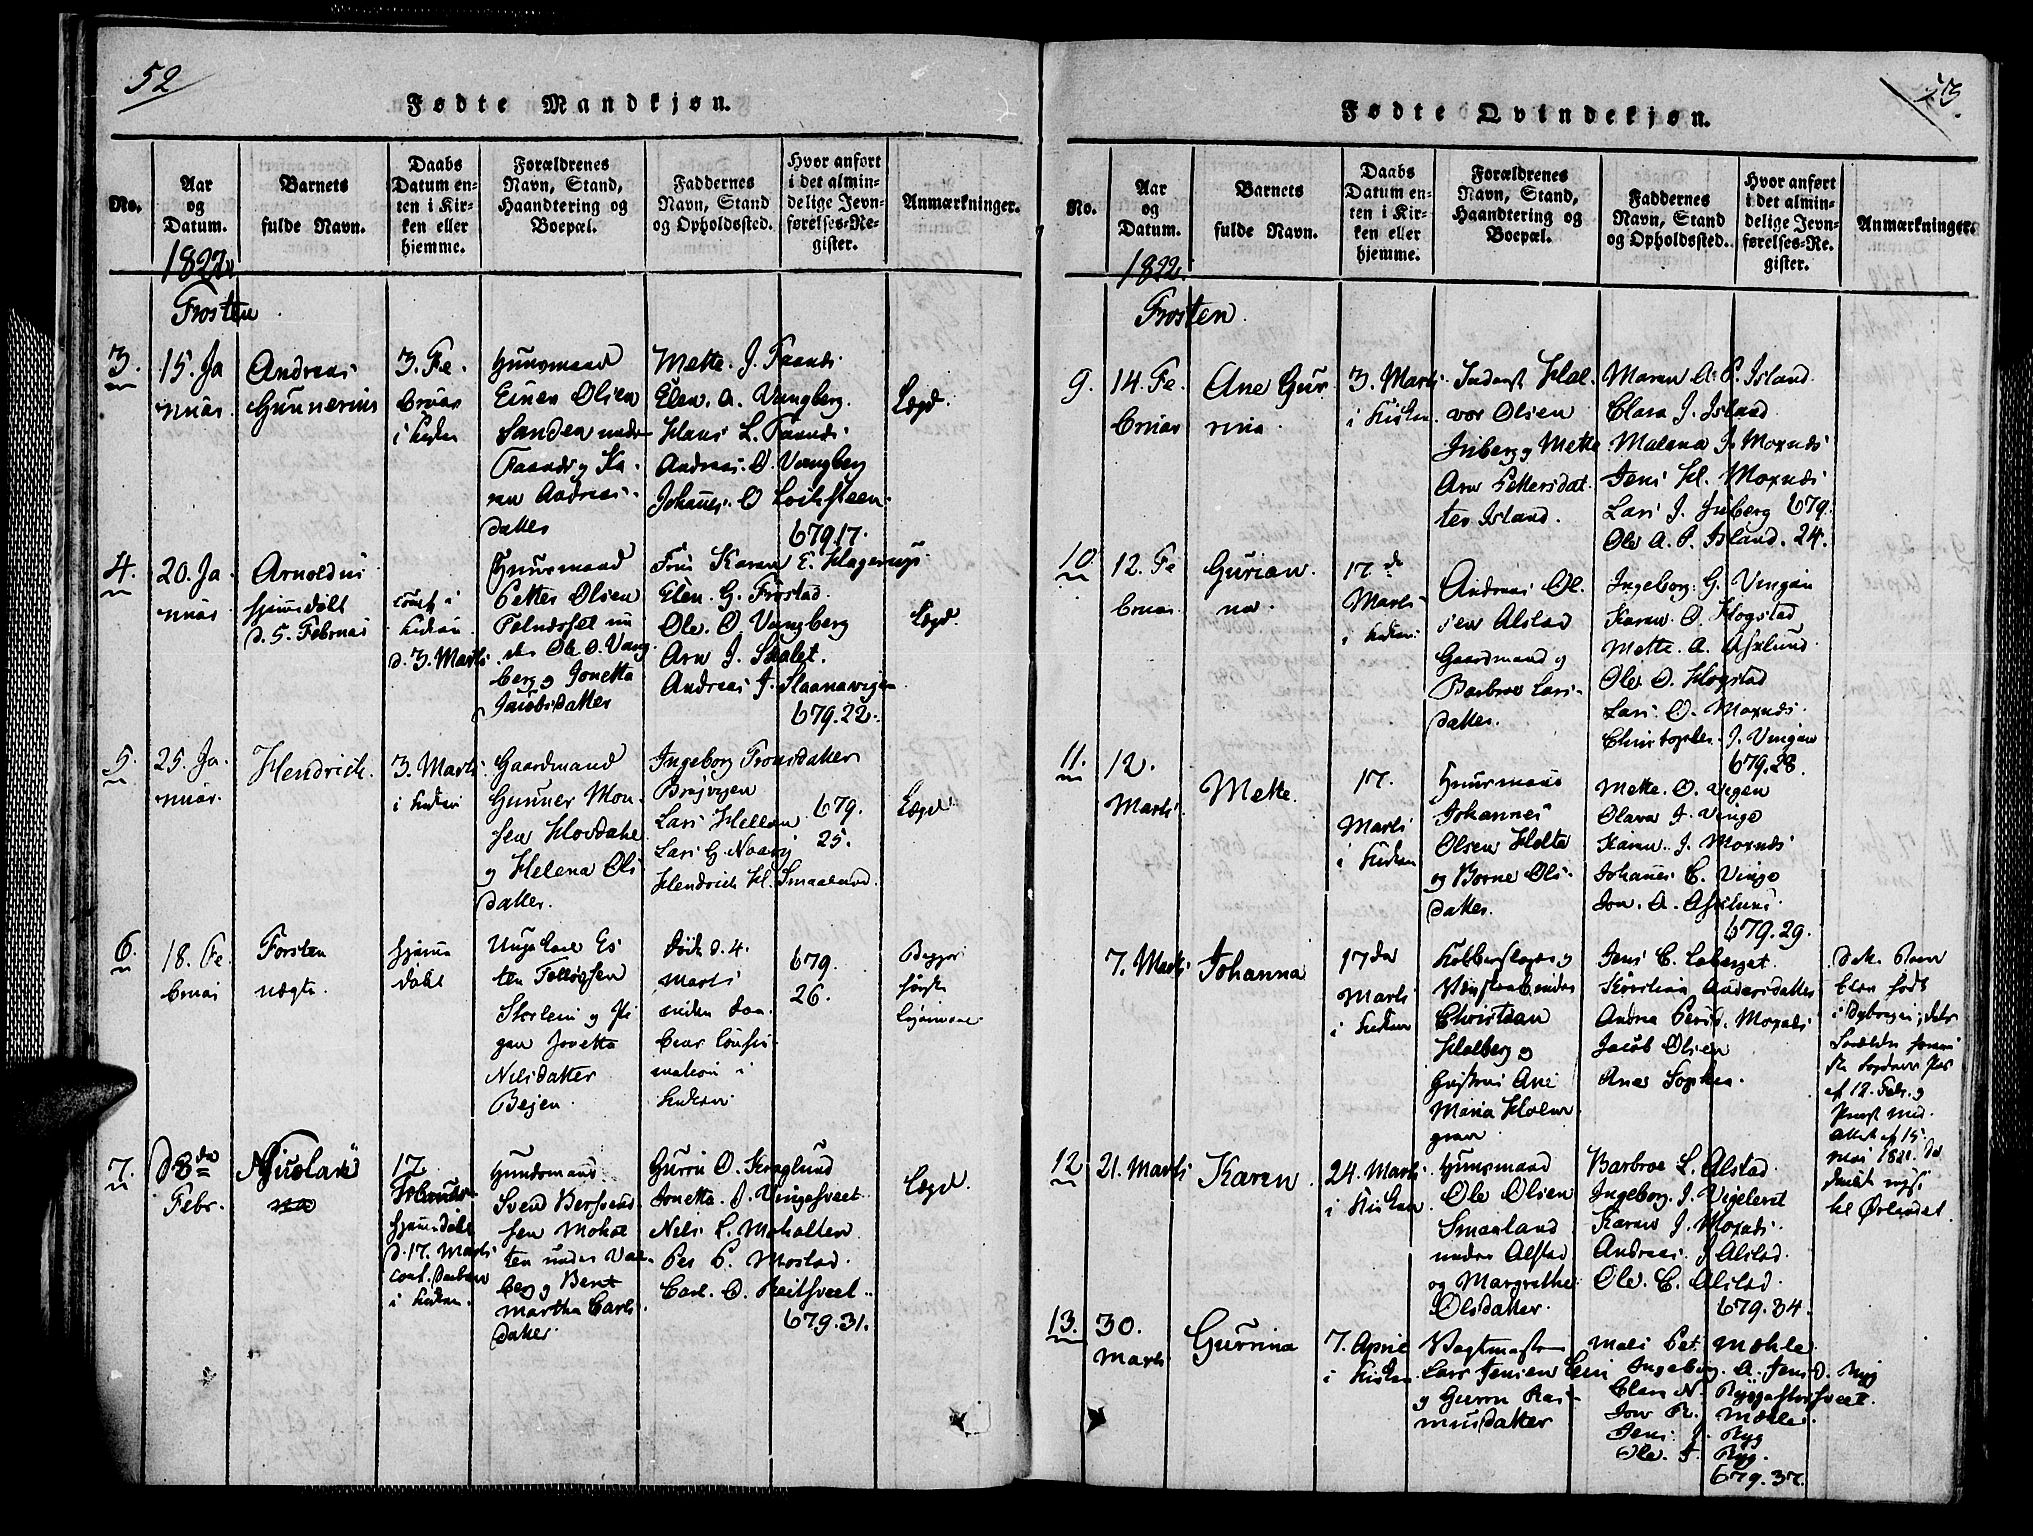 52
Fødte Mandkjøn.
No.
Aar
og
Datum.
Barnets
fulde Navn.
Daabs
Datum en-
ten i Kir-
ken eller
hjemme.
Forældrenes
Navn, Stand,
Haandtering og
Boepæl.
Faddernes
Navn, Stand
og Opholdssted.
Hvor anført
i det almin-
delige Jevn-
førelses-Re-
gister.
Anmærkninger.
1822.
Frosten
3.
15. Ja
nuar.
Andreas
Gunnerius
3. Fe.
bruar
i Kirken
Huusmand
Einer Olsen
Sanden under
Faandsog Ka-
ren Andreas-
datter
Mette. J. Faands
Elen. A. Vangberg.
Hans L. Faands
Andreas. O Vangberg
Johannes. O Lochsteen
679.17.
Lægd.
4.
20. Ja
nuar
Arnoldus
hjemdøbt
d. 5. Februar
i
Kirken
d. 3. Marts
Huusmand
Petter Olsen
under Ole O. Vang
berg og Jonetta
Jacobsdatter
Frue Karen E. Hagerup.
Elen. G. Frostad.
Ole. O Vangberg
Arn J. Saalet.
Andreas J. Slaanavigen
679.22.
Lægd.
5.
25. Ja.
nuar.
Hendrich.
3. Marts
i Kirken
Gaardmand
Gunner Mon-
sen Hovdahl
og Helena Ols
datter.
Ingeborg Tronsdatter
Lars Hellem
Lars G. Naavig
Hendrich H. Smaaland.
679.
25.
Lægd.
6.
18. Fe
bruar
Torsten
uægte.
hjemme
døbt
Ungekarl Es
ten
og Pi
gen Jonetta
Nilsdatter
Bejen.
Døde d. 4.
Marts
inden Daa-
bens Confir-
mation i
Kirken
679
26.
første
Lejermaal
7.
d 8de
Febr.
Nicolai
17
Februar
hjemdøbt
d. 17. Marts
conf. Daaben
i Kirken.
Huusmand
Svend Bersvend
sen Mohol
ten under Van
berg og Bent
martha Carls
datter.
Gurru O. Kraglund
Jonetta. J. Vingesveet
Nils L. Moholten
Per P. Mostad.
Carl. O. Reitsveet..
679.31.
Lægd.
53.
Fødte Qvindekjøn.
No.
Aar
og
Datum.
Barnets
fulde Navn.
Daabs
Datum en-
ten i Kir-
ken eller
hjemme.
Forældrenes
Navn, Stand,
Haandtering og
Boepæl.
Faddernes
Navn, Stand
og Opholdssted.
Hvor anført
i det almin-
delige Jevn-
førelses-Re.
gister.
Anmærkninger.
1822.
Frosten.
9.
14. Fe.
bruar
Ane Gur
rina.
3. Marts
i Kirken.
Inderst Hal-
vor Olsen
Inberg og Mette
Arn Pettersdat
ter Island.
Maren A. P. Island.
Clara J. Island
Malena J. Moxnæs
Jens H. Moxnæs
Lars J. Inberg 679.
Ole A. P. Island. 24.
10.
12. Fe
bruar.
Gurian.
na.
17.de
Marts
i Kirken.
Andreas Ol.
sen Alstad
Gaardmand og
Barbroe Lars-
datter.
Ingeborg. G. Vingan
Karen. O. Hogstad
Mette. A. Asklund.
Ole O. Hogstad
Lars. O. Moxnæs.
Christopher. J. Vingan
679.28.
11.
12.
Marts
Mette.
17.
Marts
i Kirken
Huusmand
Johannes
Olsen Holta
og Borne Ols-
datter.
Mette. O. Vegan
Olava J. Vinge
Karen. J. Moxnæs
Johannes C. Vinge
Jon. A. Asklund.
679.29.
7. Marts
Johanna
17den
Marts
i Kirken
Kobberslager og
Christian
Holberg og
Hustrue Ane
Maria Holm
green
Jens C. Laberget.
Christian Andersdatter
Andrea Persd. Moxnæs
Jacob Olsen
Anne Sophia.
Dette Barn
blev født
i
Forældre
af 12. Febr. og
med
af 15
mai 1821.
til Ørlandet.
12.
21. Marts
Karen.
24. Marts
i Kirken
Huusmand
Ole Olsen
Smaaland
under Alstad
og Margrethe
Olsdatter.
Barbroe L. Alstad.
Ingeborg. J. Vigeleret
Karen J. Moxnæs.
Andreas. J. Alstad.
Ole. C. Alstad.
679.34.
13.
30.
Marts
Gurrina
7. April
i Kirken.
Vagtmester
Lars Jensen
og Gurru Ras-
musdatter
Mali Pet. Mæhle
Ingeborg. A. Jensd. Ryg
Elen N. Ryggaslorsveet.
Jon R. Mæhle.
Jens J. Ryg
Ole. J. Ryg.
679.37.